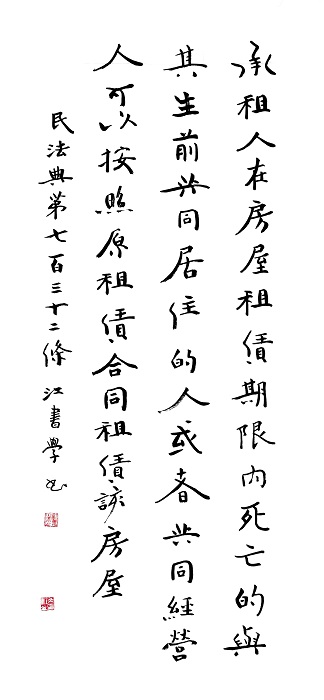 承租人在房屋租賃期限内死亡的與
其生前共同居住的人或者共同經營
人可以按照原租賃合同租賃該房屋
民法典第七百三十二條 江書學书